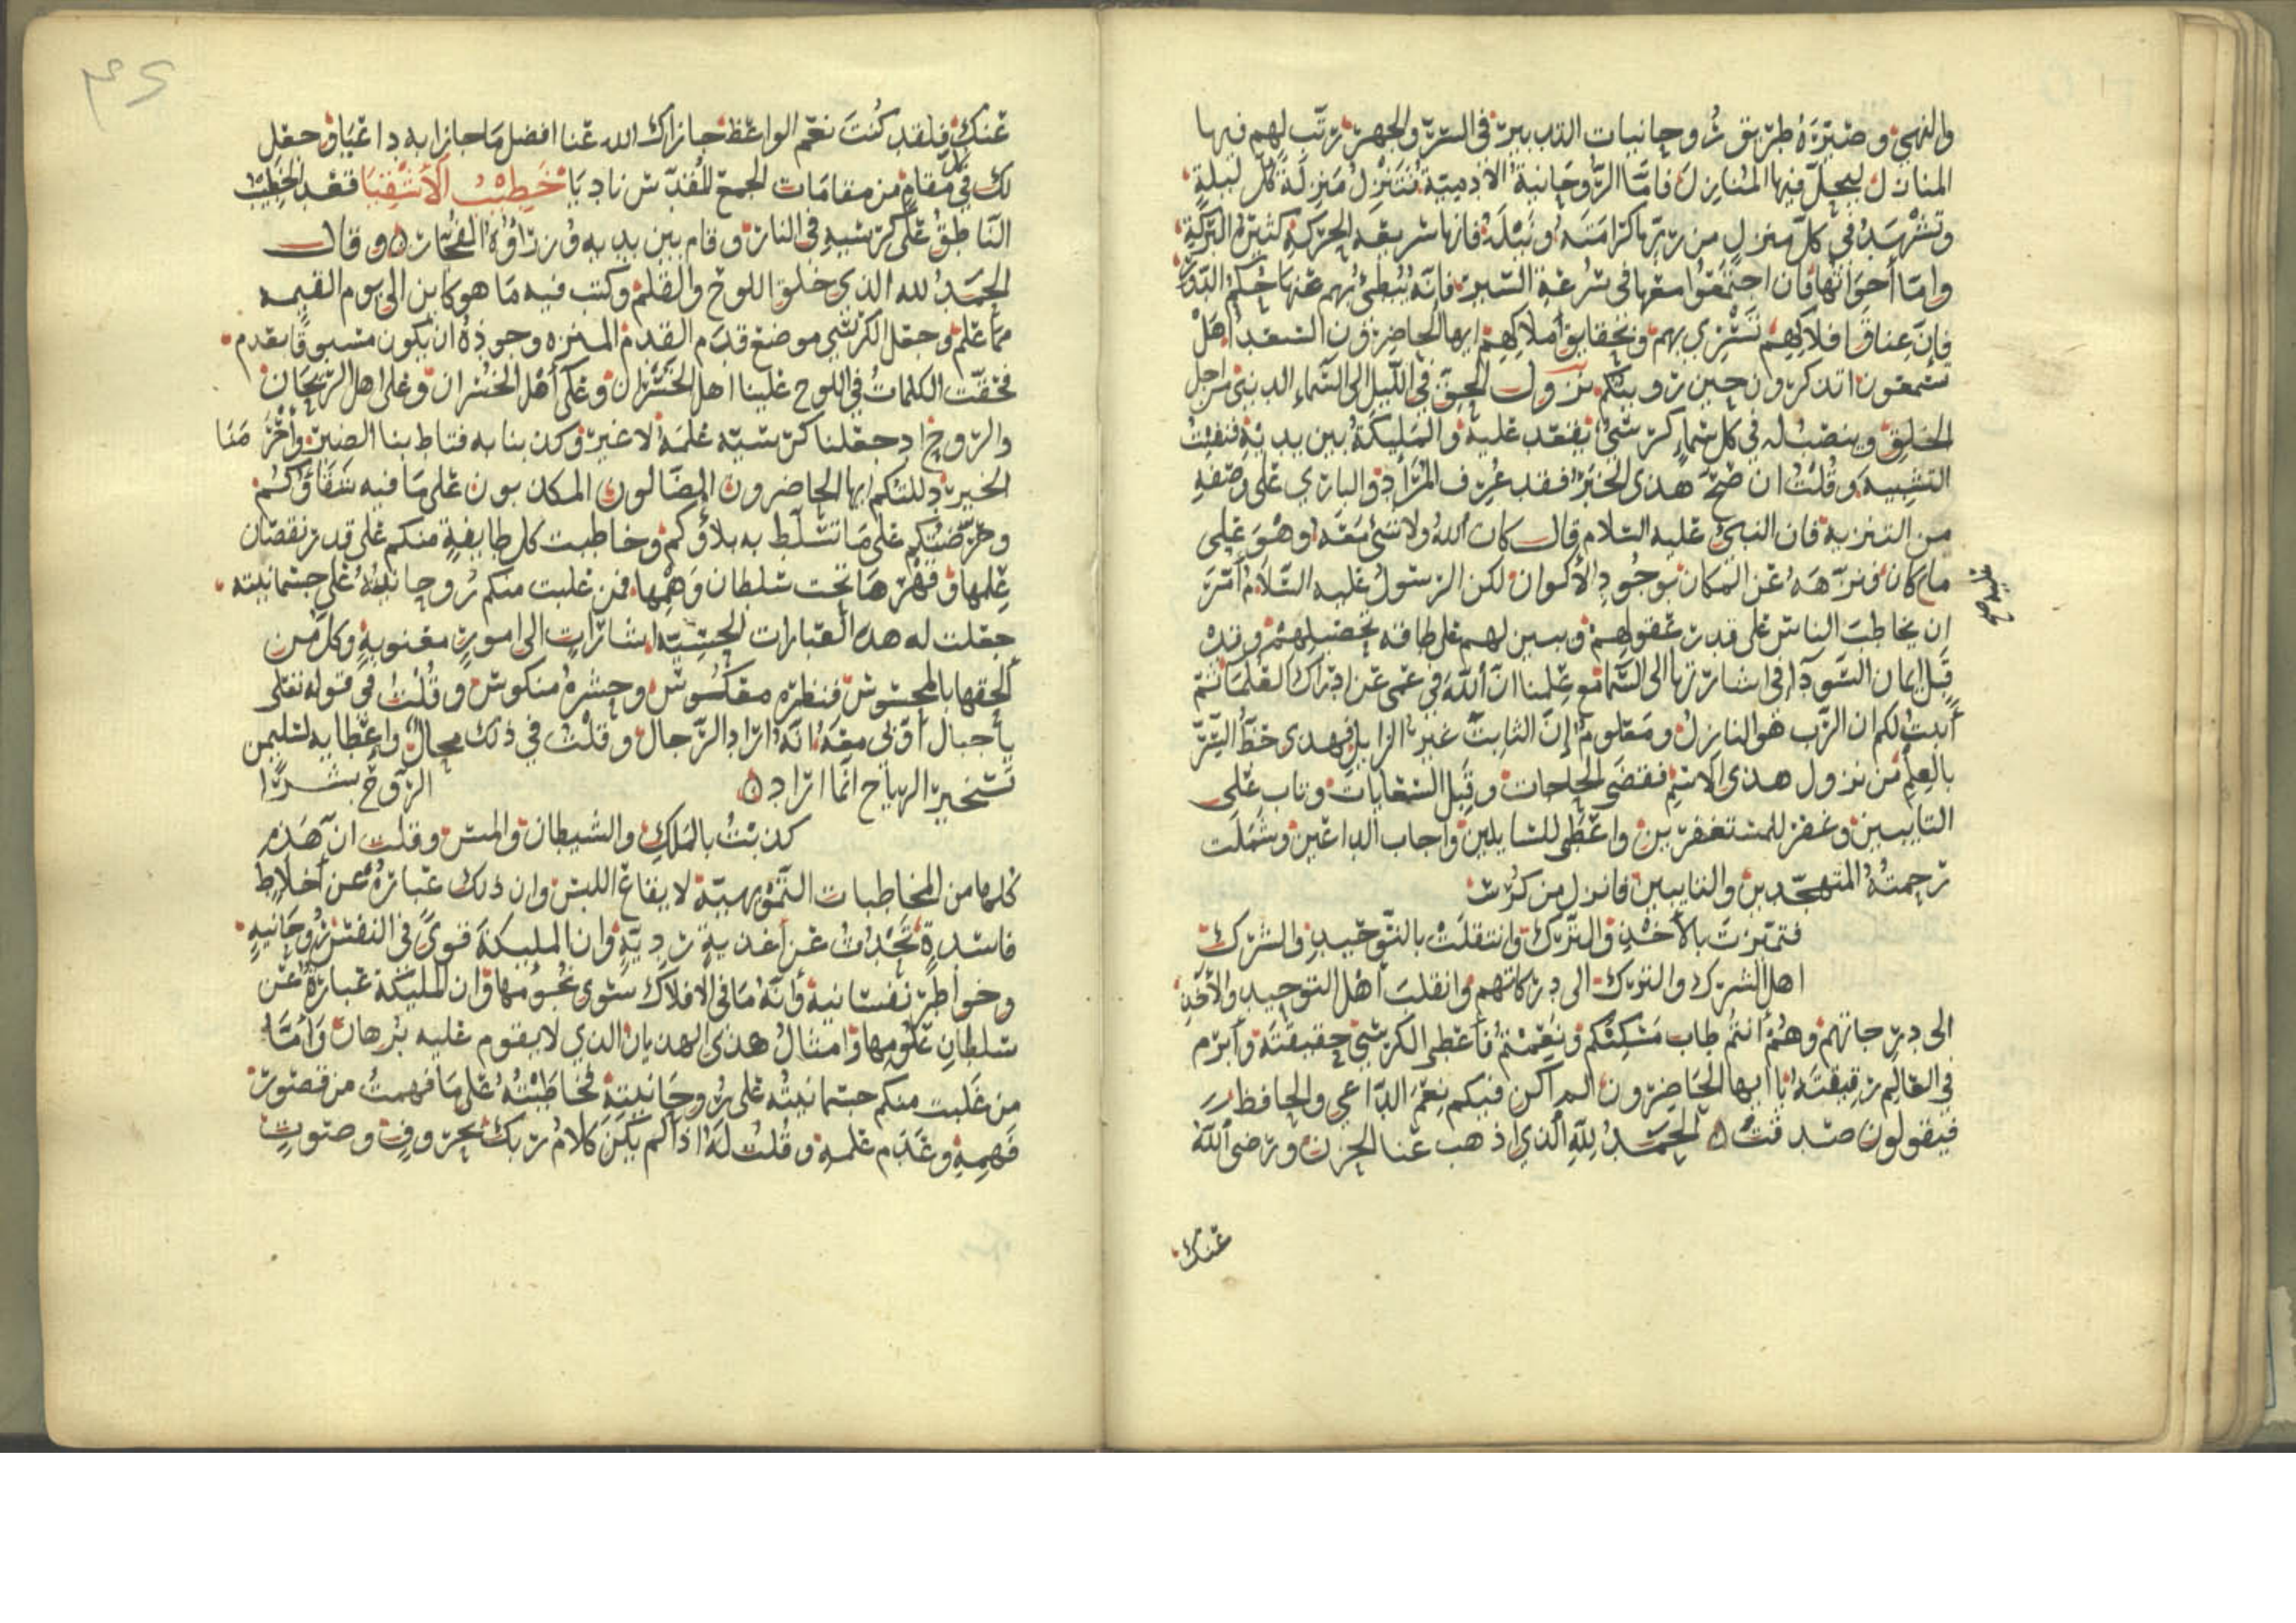 والنهى وصيره طريق روحانيات التدبير في السر والجهر رتب لهم فيها
المنازل ليحل فيها المنازل فاما الروحانية الادمية فتنزل منزلة كل ليلة
وتشهد في كل منزل من ربها كرامته ونيله فانها سريعه الحركة كثيرة البركة
واما أخواتها فان اجتمعوا معها في سرعة السير فانه يبطئ بهم عنها حكم الدور
فان عتاق افلاكهم تسري بهم وبحقايق املاكهم ايها الحاضرون السعدا هل
تسمعون اتذكرون حين رويتكم نزول الحق في الليل الى السماء الدنيا من اجل
الخلق وينصب له في كل سماء كرسي يقعد عليه والمليكة بين يديه فنفيت
التشبيه وقلت ان صح هذى الخبر فقد عرف المراد والباري على وصفه
من التنزيه فان النبي عليه السلام قال كان الله ولا شئ معه وهو على
ما عليه كان فنزهه عن المكان بوجود الأكوان لكن الرسول عليه السلام أمر
عليه صح
ان يخاطب الناس على قدر عقولهم ويبين لهم على طاقة تحصيلهم وقد
قبل ايمان السودا في اشارتها الى السما مع علمنا ان الله في عمى عن ادراك العلما ثم
أبنت لكم ان الرب هو النازل ومعلوم إن الثابت غير الزايل فهدى حظ السر
بالعلم من نزول هذى الاسم فقضى الحاجات وقبل الشفايات وتاب على
التايبين وغفر للمستغفرين واعطى للسايلين واجاب الداعين وشملت
رحمته المتهجدين والنايبين فانزل من كرسي
فتميزت بالأخذ والترك وانتقلت بالتوحيد والشرك
اهل الشرك والترك الى دركاتهم وانقلب أهل التوحيد والأخذ
الى درجاتهم وهم أنتم طاب مسكنكم ونعمتم فأعطى الكرسي حقيقته وأبرم
في العالم رقيقته يا ايها الحاضرون الم اكن فيكم نعم الداعي والحافظ
فيقولون صدقت ۞ الحمد لله الذي اذهب عنا الحزن ورضي الله
عنك
عنك فلقد كنت نعم الواعظ جازاك الله عنا افضل ما جازا به داعيا وجعل
لك في كل مقام من مقامات الجمع المقدس ناديا خطيب الأشقيا فقعد الخطيب
الناطق على كرسيه في النار وقام بين يديه وزراؤه الفجار ۞ وقال
الحمد لله الذي خلق اللوح والقلم وكتب فيه ما هو كاين الى يوم القيمه
مما علم وجعل الكرسي موضع قدم القدم المنزه وجوده ان يكون مسبوقا بعدم
فحقت الكلمات في اللوح علينا اهل الخسران وعلى أهل الريحان
والروح اذ جعلنا كرسيه علمه لا غير وكذبنا به فتاط بنا الضير وأخر منا
الخير ذللتكم ايها الحاضرون الضالون المكذبون على ما فيه شقاؤكم
وحرضتكم على ما تسلط به بلاؤكم وخاطبت كل طايفة منكم على قدر نقصان
علمها وقهرها تحت سلطان وهمها فمن غلبت منكم روحانيته على جسمانيته
جعلت له هذه العبارات الحسية اشارات الى امور معنوية وكل من
ألحقها بالمحسوس فنظره معكوس وحشره منكوس وقلت في قوله تعلى
يا جبال أوبي معه انه اراد الرجال وقلت في ذلك محال واعطايه لسليمن
تسخير الرياح انما اراد ۞ الروح بسرا
كذبت بالملك والشيطان والمس وقلت ان هذه
كلها من المخاطبات التمويهية لايقاع اللبس وان ذلك عبارة عن أخلاط
فاسدة تحدث عن أغذية ردية وان المليكة قوى في النفس روحانيه
وخواطر نفسانية وأنه ما في الافلاك سوى نجومها وان المليكة عبارة عن
سلطان علومها وامثال هذى الهذيان الذي لا يقوم عليه برهان وأما
من غلبت منكم جسمانيته على روحانيته فخاطبته على ما فهمت من قصور
فهمه وعدم علمه وقلت له اذا لم يكن كلام ربك بحروف وصوت